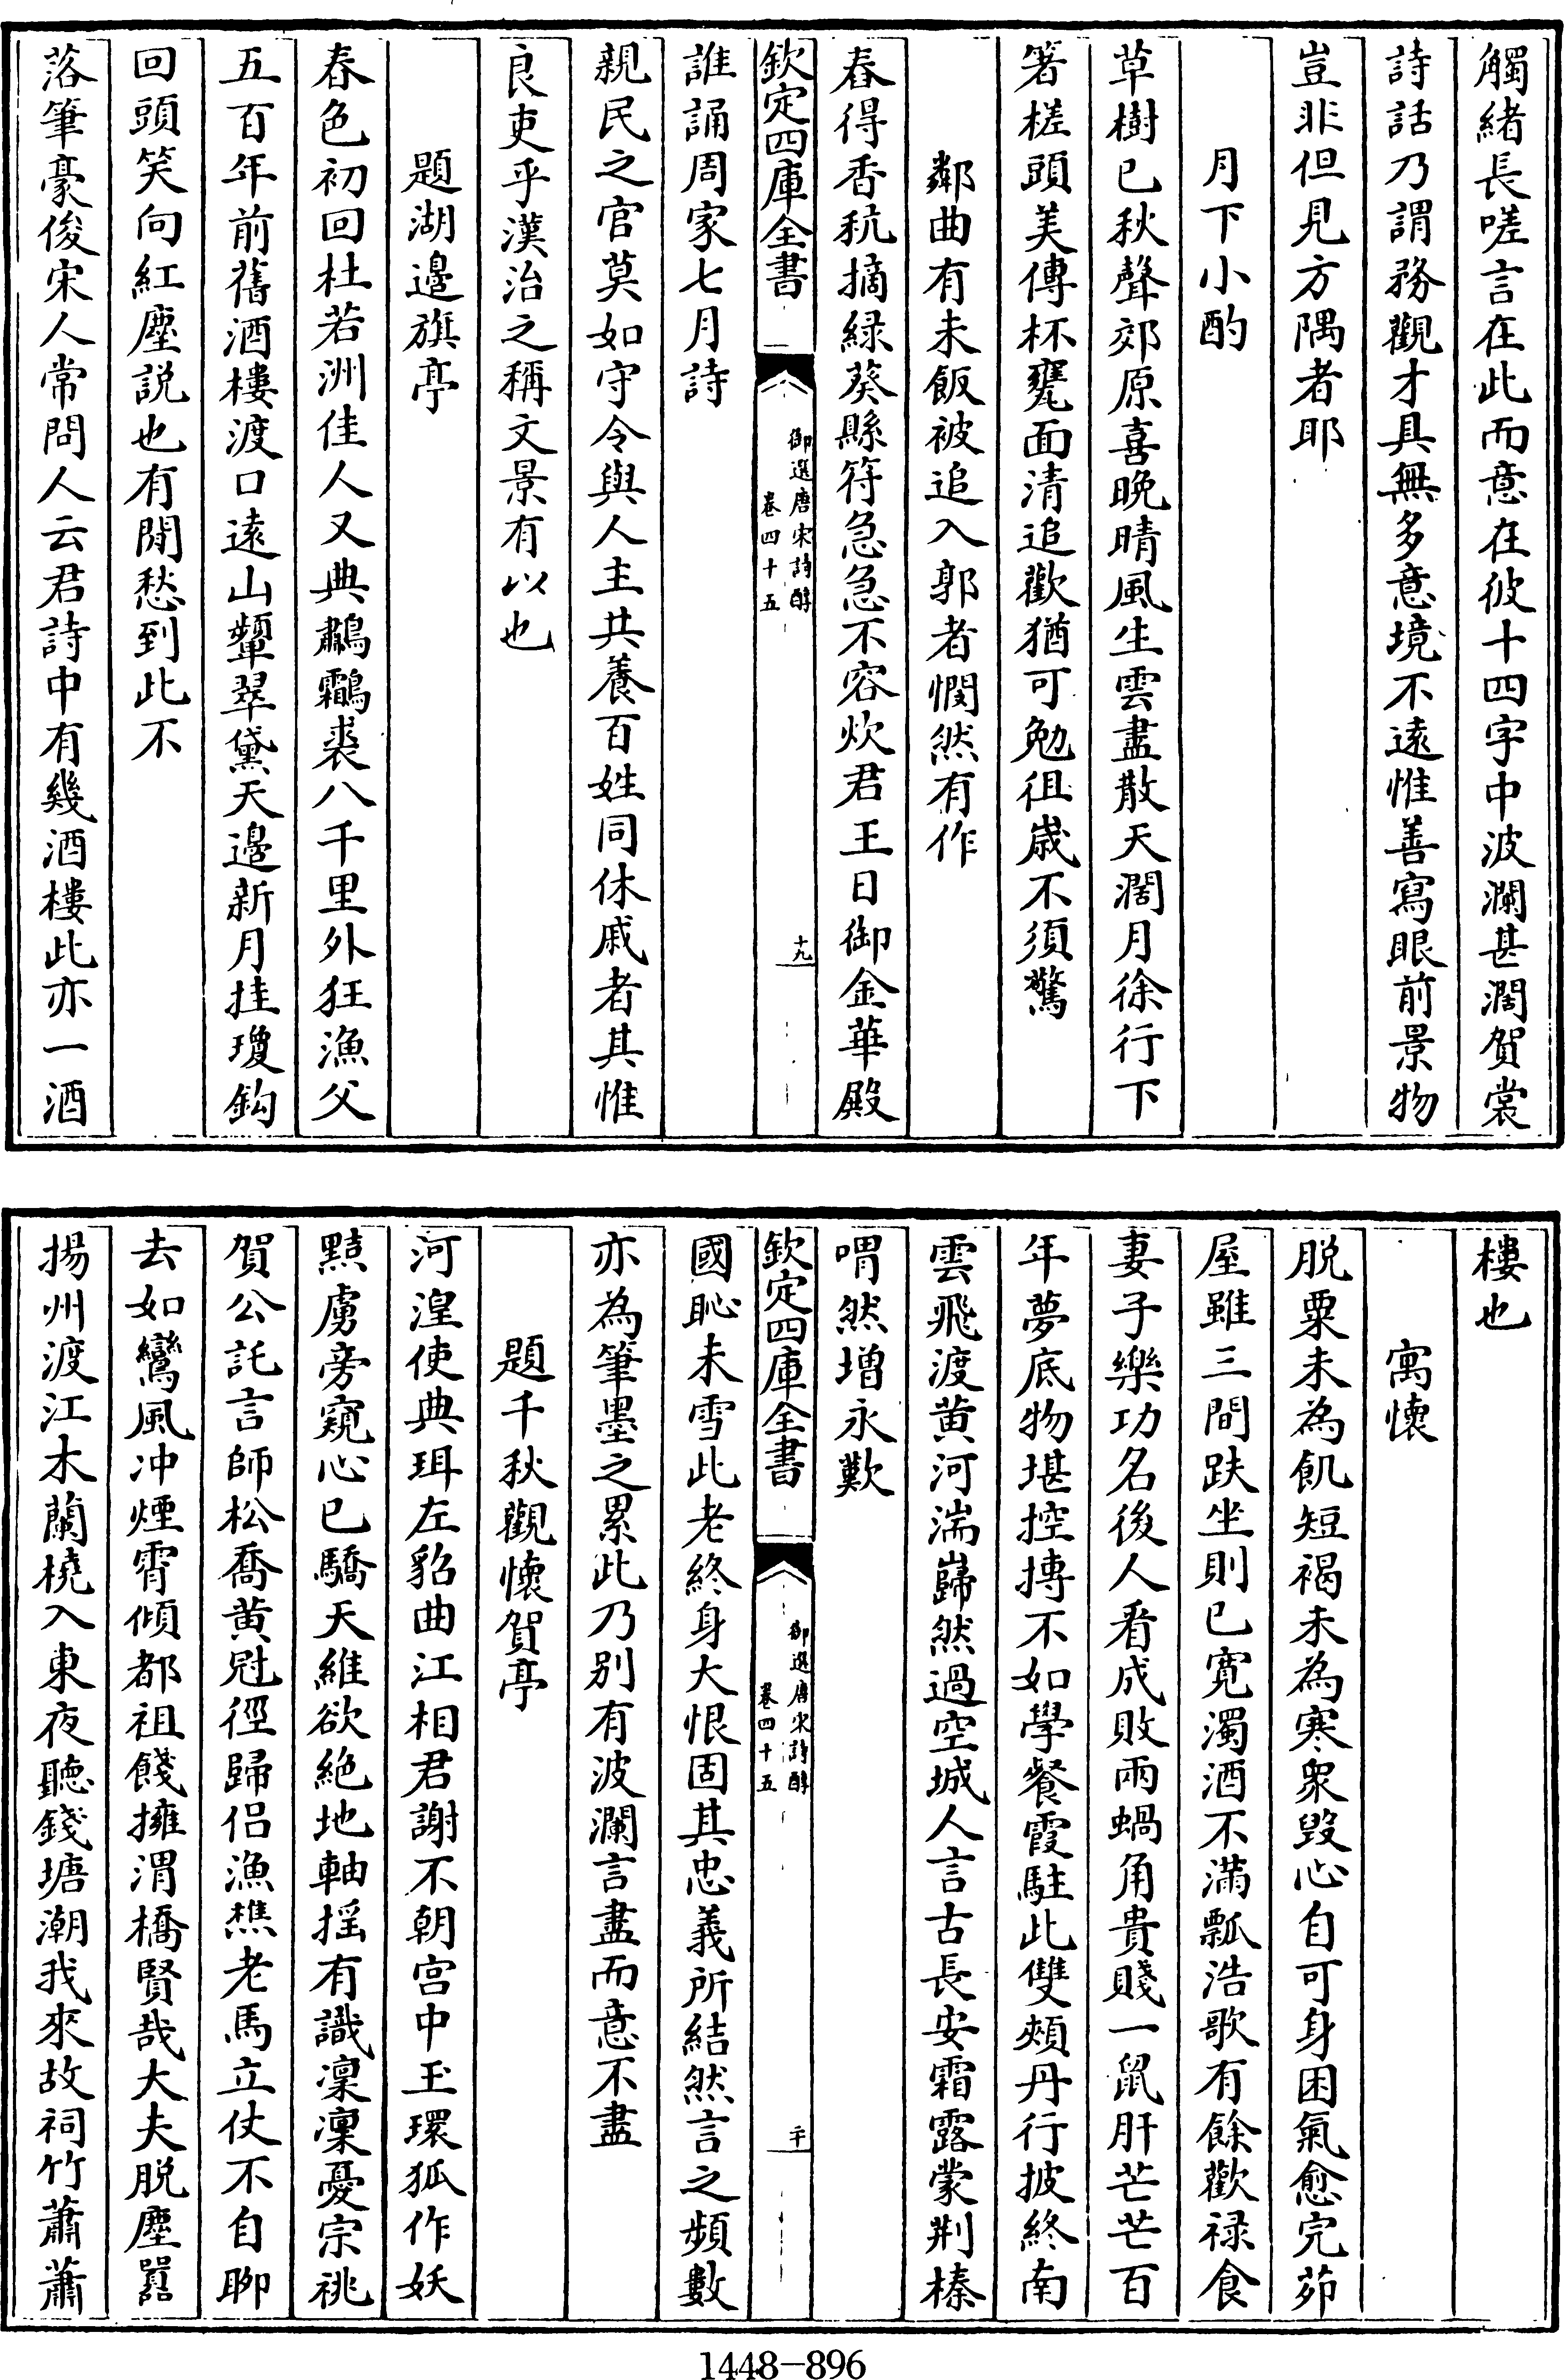 觸緒長嗟言在此而意在彼十四字中波瀾甚濶賀裳
詩話乃謂務觀才具無多意境不逺惟善寫眼前景物
豈非但見方隅者耶
月下小酌
草樹已秋聲郊原喜晚晴風生雲盡散天濶月徐行下
箸槎頭美傳杯甕面清追歡猶可勉徂歳不須驚
鄰曲有未飯被追入郭者憫然有作
舂得香秔摘緑葵縣符急急不容炊君王日御金華殿
欽定四庫全書
御選唐宋詩醇
卷四十五
十九
誰誦周家七月詩
親民之官莫如守令與人主共養百姓同休戚者其惟
良吏乎漢治之稱文景有以也
題湖邉旗亭
春色初回杜若洲佳人又典鷫鸘裘八千里外狂漁父
五百年前舊酒樓渡口逺山顰翠黛天邉新月挂瓊鈎
回頭笑向紅塵説也有閒愁到此不
落筆豪俊宋人常問人云君詩中有幾酒樓此亦一酒
樓也
寓懐
脱粟未為飢短褐未為寒衆毁心自可身困氣愈完茆
屋雖三間趺坐則已寛濁酒不滿瓢浩歌有餘歡禄食
妻子樂功名後人看成敗兩蝸角貴賤一鼠肝芒芒百
年夢底物堪控摶不如學餐霞駐此雙頰丹行披終南
雲飛渡黄河湍巋然過空城人言古長安霜露蒙荆榛
喟然增永歎
欽定四庫全書
御選唐宋詩醇
卷四十五
二十
國恥未雪此老終身大恨固其忠義所結然言之頻數
亦為筆墨之累此乃别有波瀾言盡而意不盡
題千秋觀懐賀亭
河湟使典珥左貂曲江相君謝不朝宫中玉環狐作妖
黠虜旁窺心已驕天維欲絶地軸揺有識凜凜憂宗祧
賀公託言師松喬黄冠徑歸侣漁樵老馬立仗不自聊
去如鸞風冲煙霄傾都祖餞擁渭橋賢哉大夫脱塵囂
揚州渡江木蘭橈入東夜聽錢塘潮我來故祠竹蕭蕭
1448-896